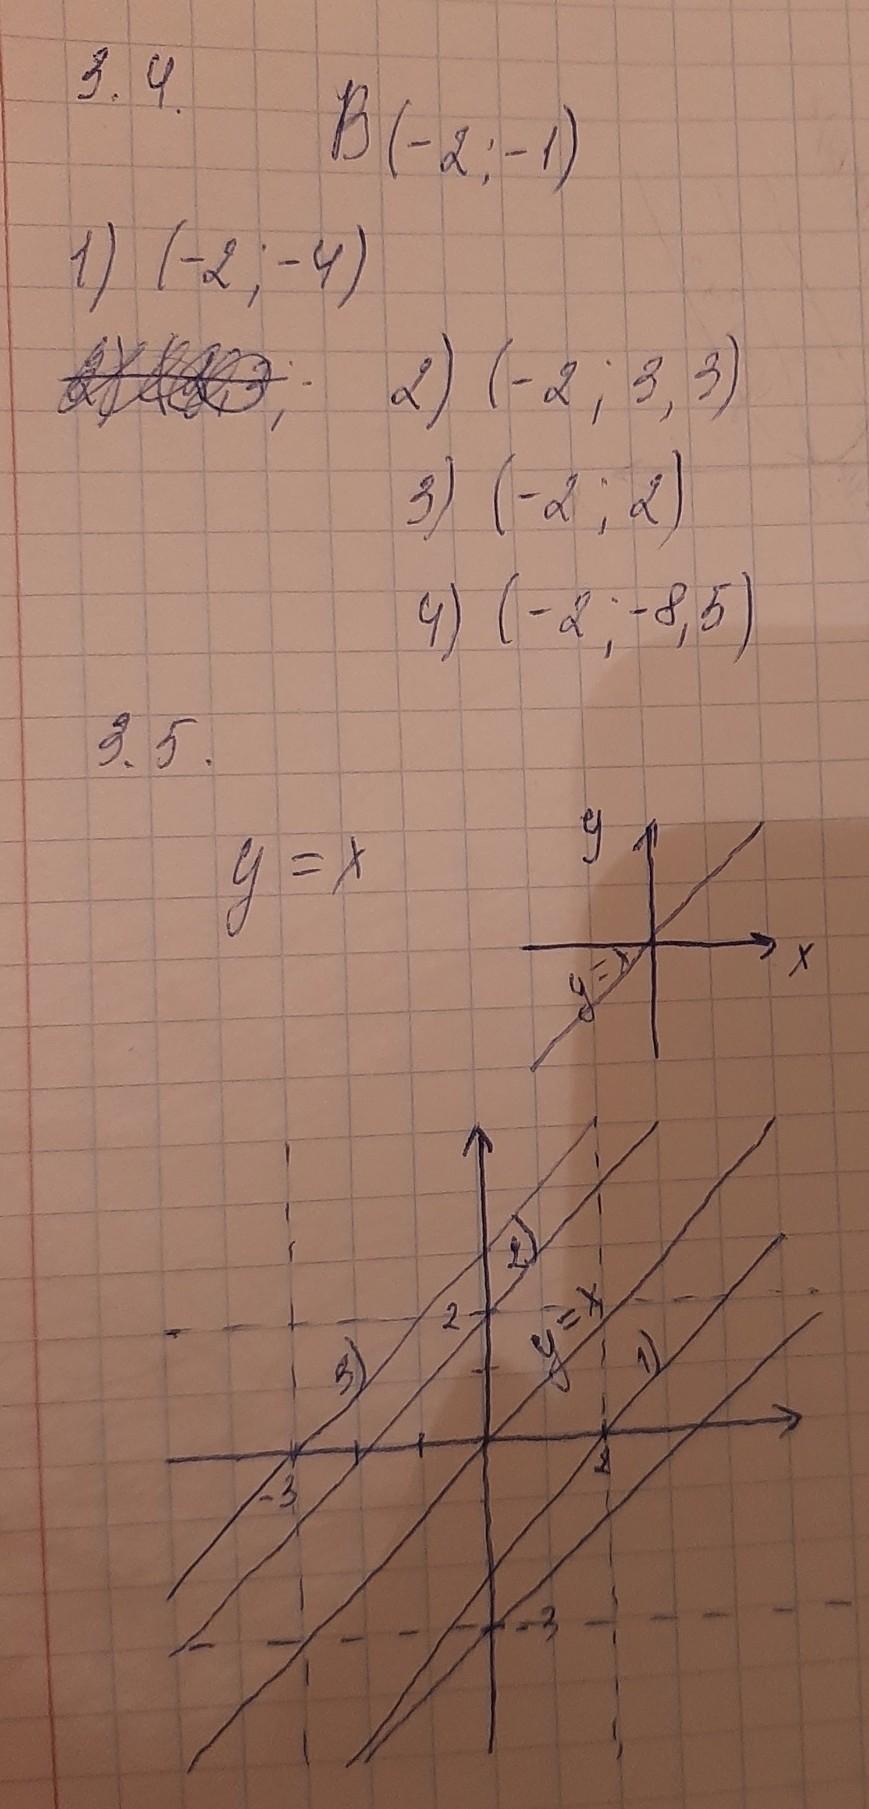 3.4.
B(-2;-1)
1) (-2;-4)
2) (-2;3,3)
3) (-2;2)
4) (-2;-8,5)
3.5.
y = x
y
x
y=x
2)
2
y=x
3)
1)
-3
2
-3